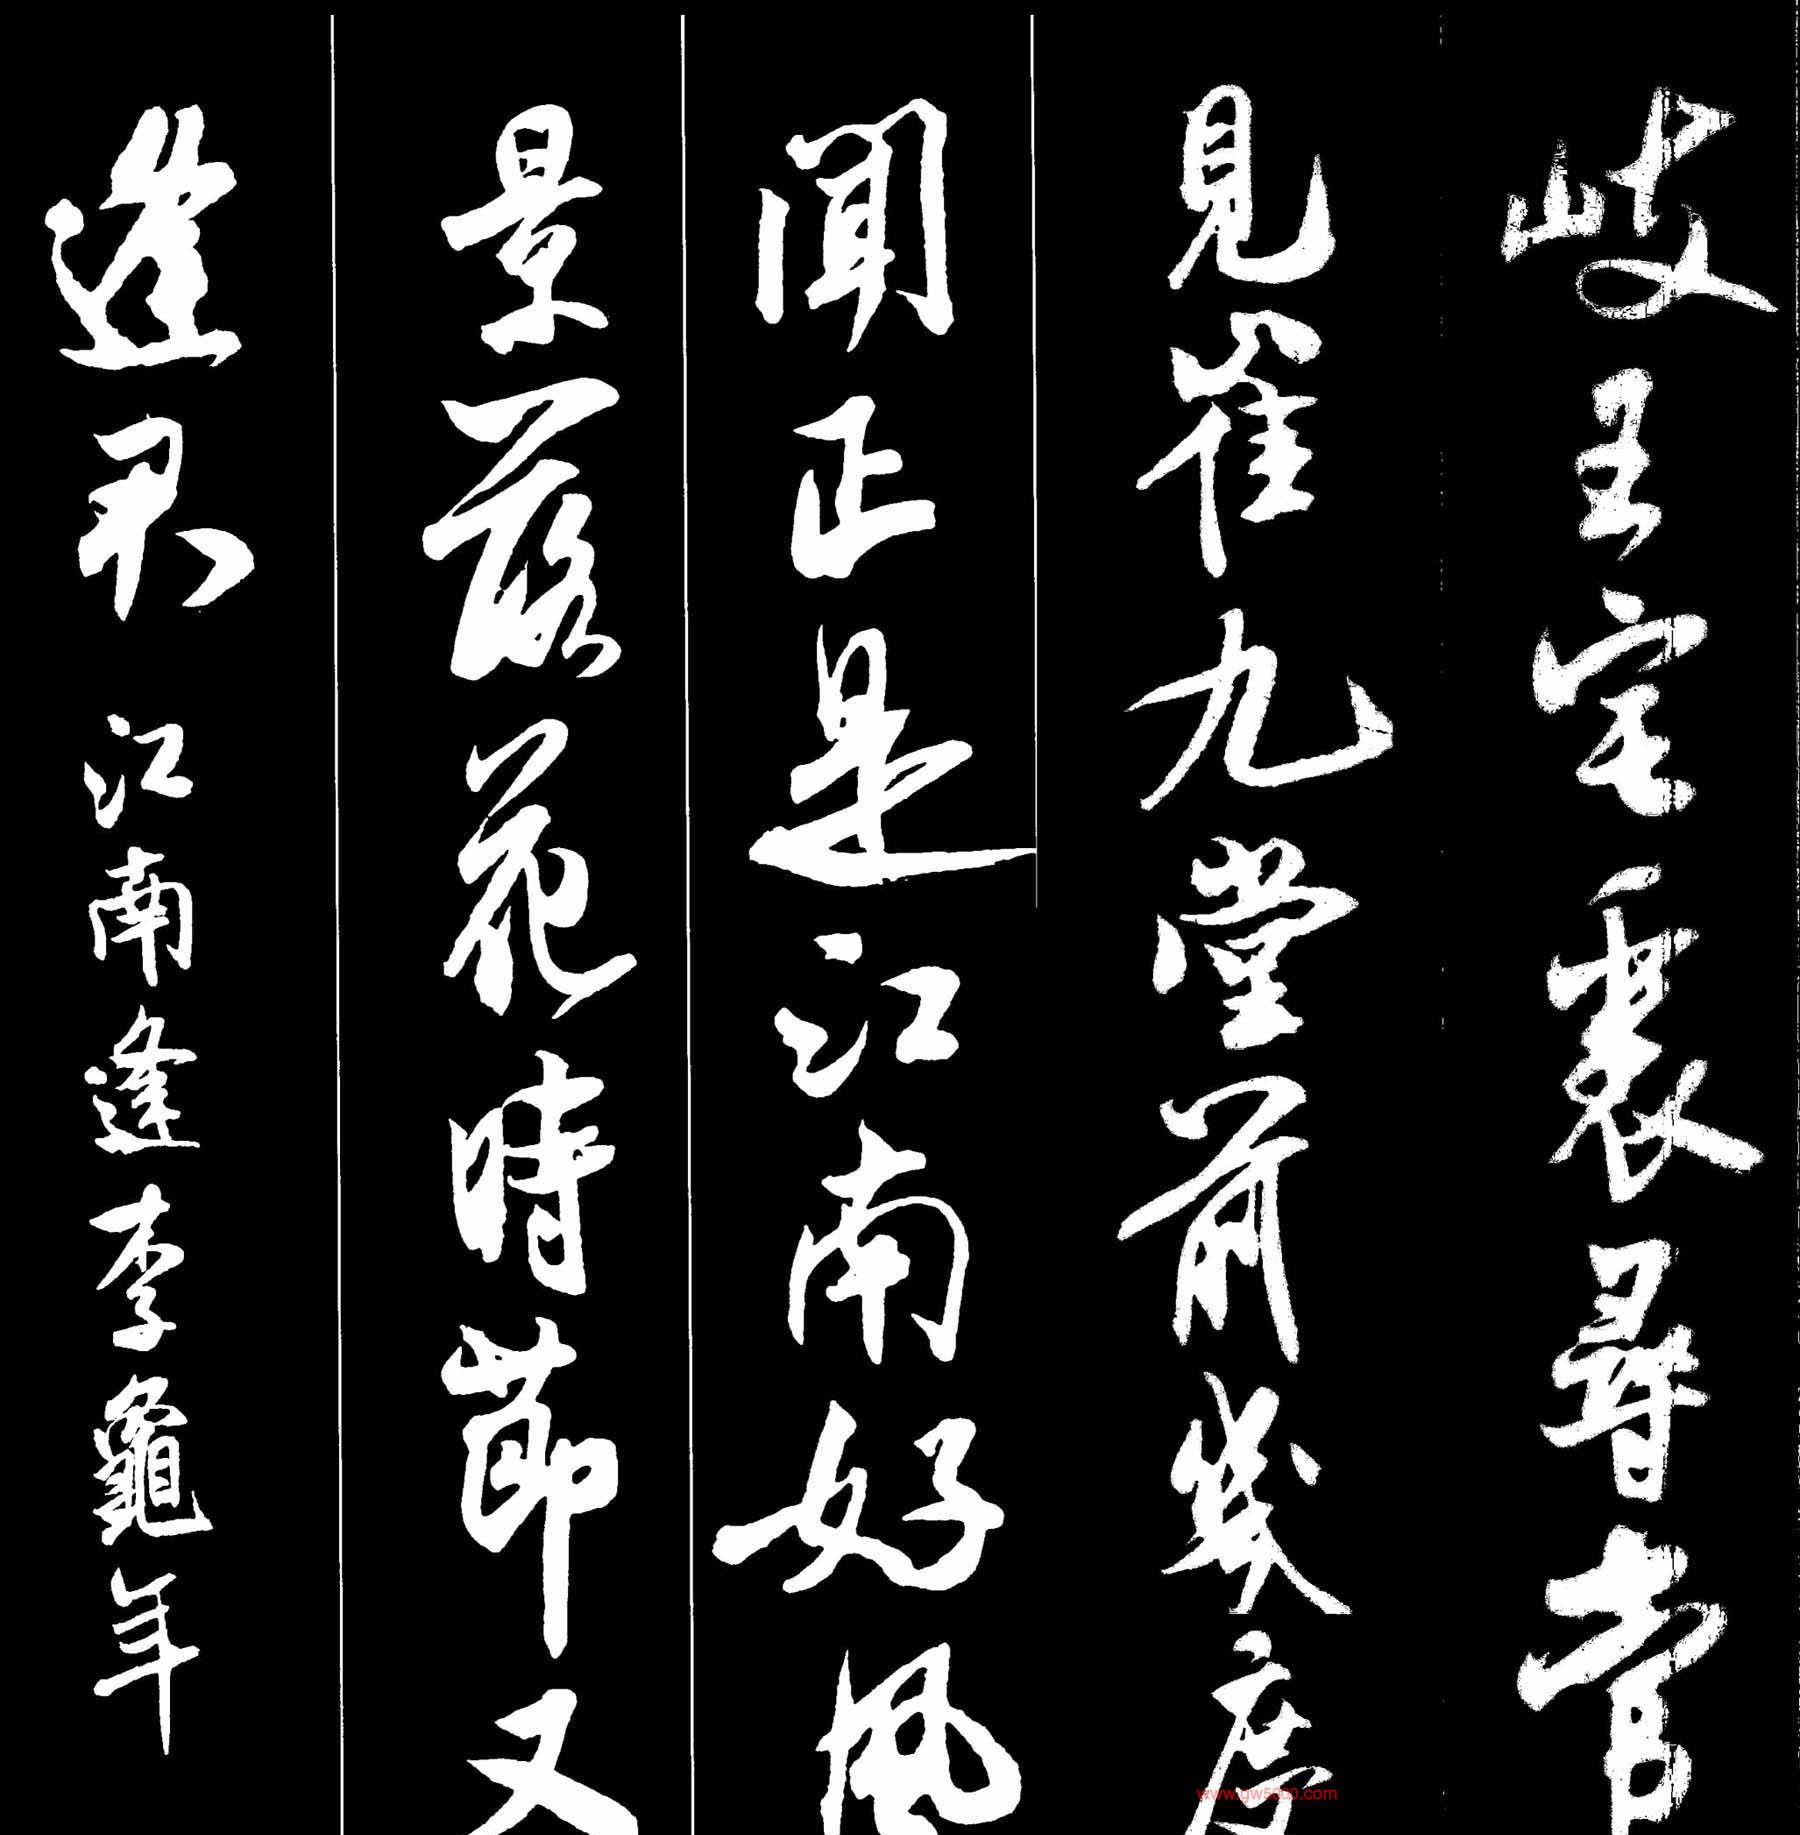 岐王宅裏尋常
見崔九堂前幾度
聞正是江南好風
景落花時節又
逢君 江南逢李龜年
www.gw5000.com